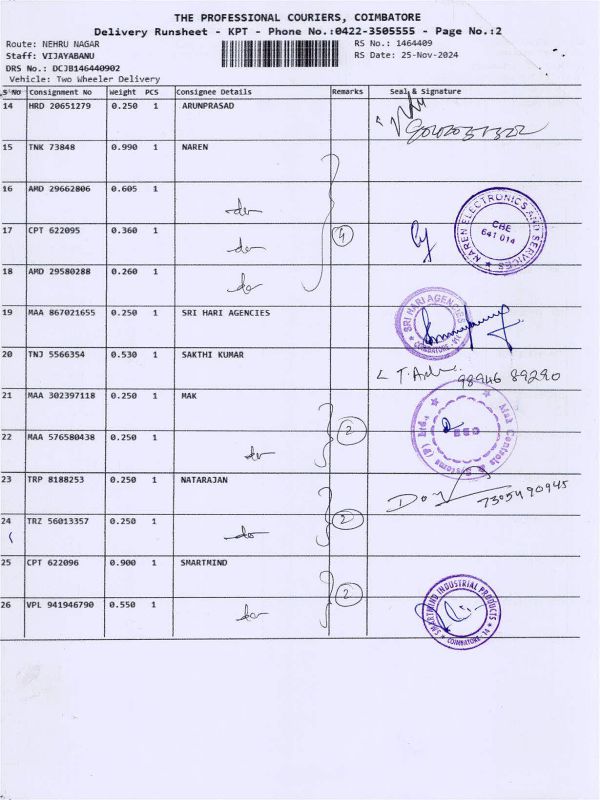 THE PROFESSIONAL COURIERS, COIMBATORE
Delivery Runsheet - KPT - Phone No.:0422-3505555 - Page No.:2
Route: NEHRU NAGAR RS No.: 1464409
Staff: VIJAYABANU RS Date: 25-Nov-2024
DRS No.: DCJB146440902
Vehicle: Two Wheeler Delivery
S No Consignment No Weight PCS Consignee Details Remarks Seal & Signature
14 HRD 20651279 0.250 1 ARUNPRASAD
15 TNK 73848 0.990 1 NAREN
16 AMD 29662806 0.605 1 do
17 CPT 622095 0.360 1 do 4
NAREN ELECTRONICS AND SERVICES ★ CBE 641 014
18 AMD 29580288 0.260 1 do
19 MAA 867021655 0.250 1 SRI HARI AGENCIES
SRI HARI AGENCIES COIMBATORE - 14
20 TNJ 5566354 0.530 1 SAKTHI KUMAR
98946 89290
21 MAA 302397118 0.250 1 MAK
Mak Controls & Systems (P) Ltd., ★ CBE
22 MAA 576580438 0.250 1 do 2
23 TRP 8188253 0.250 1 NATARAJAN
7305490945
24 TRZ 56013357 0.250 1 do 2
25 CPT 622096 0.900 1 SMARTMIND
SMARTMIND INDUSTRIAL PRODUCTS ★ COIMBATORE - 14 ★
26 VPL 941946790 0.550 1 do 2